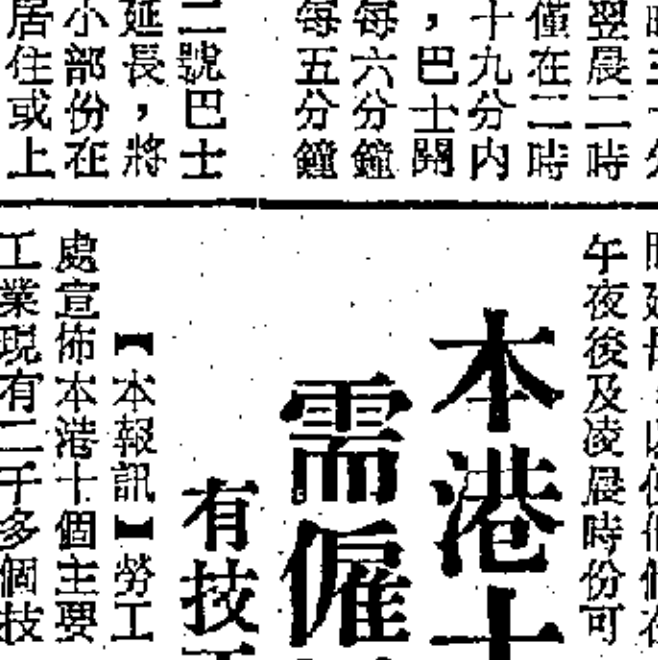 翌晨二時
僅在二時
十九分內
，巴士開
每六分鐘
每五分鐘
二號巴士
延長，將
小部份在
居住或上
午夜後及凌晨時份可
本港
需僱
有技
【本報訊】勞工
處宣佈本港十個主要
工業現有二千多個技